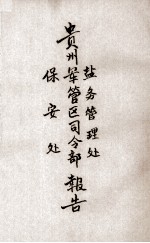 盐务管理处
貴州军管区司令部報告
保安处